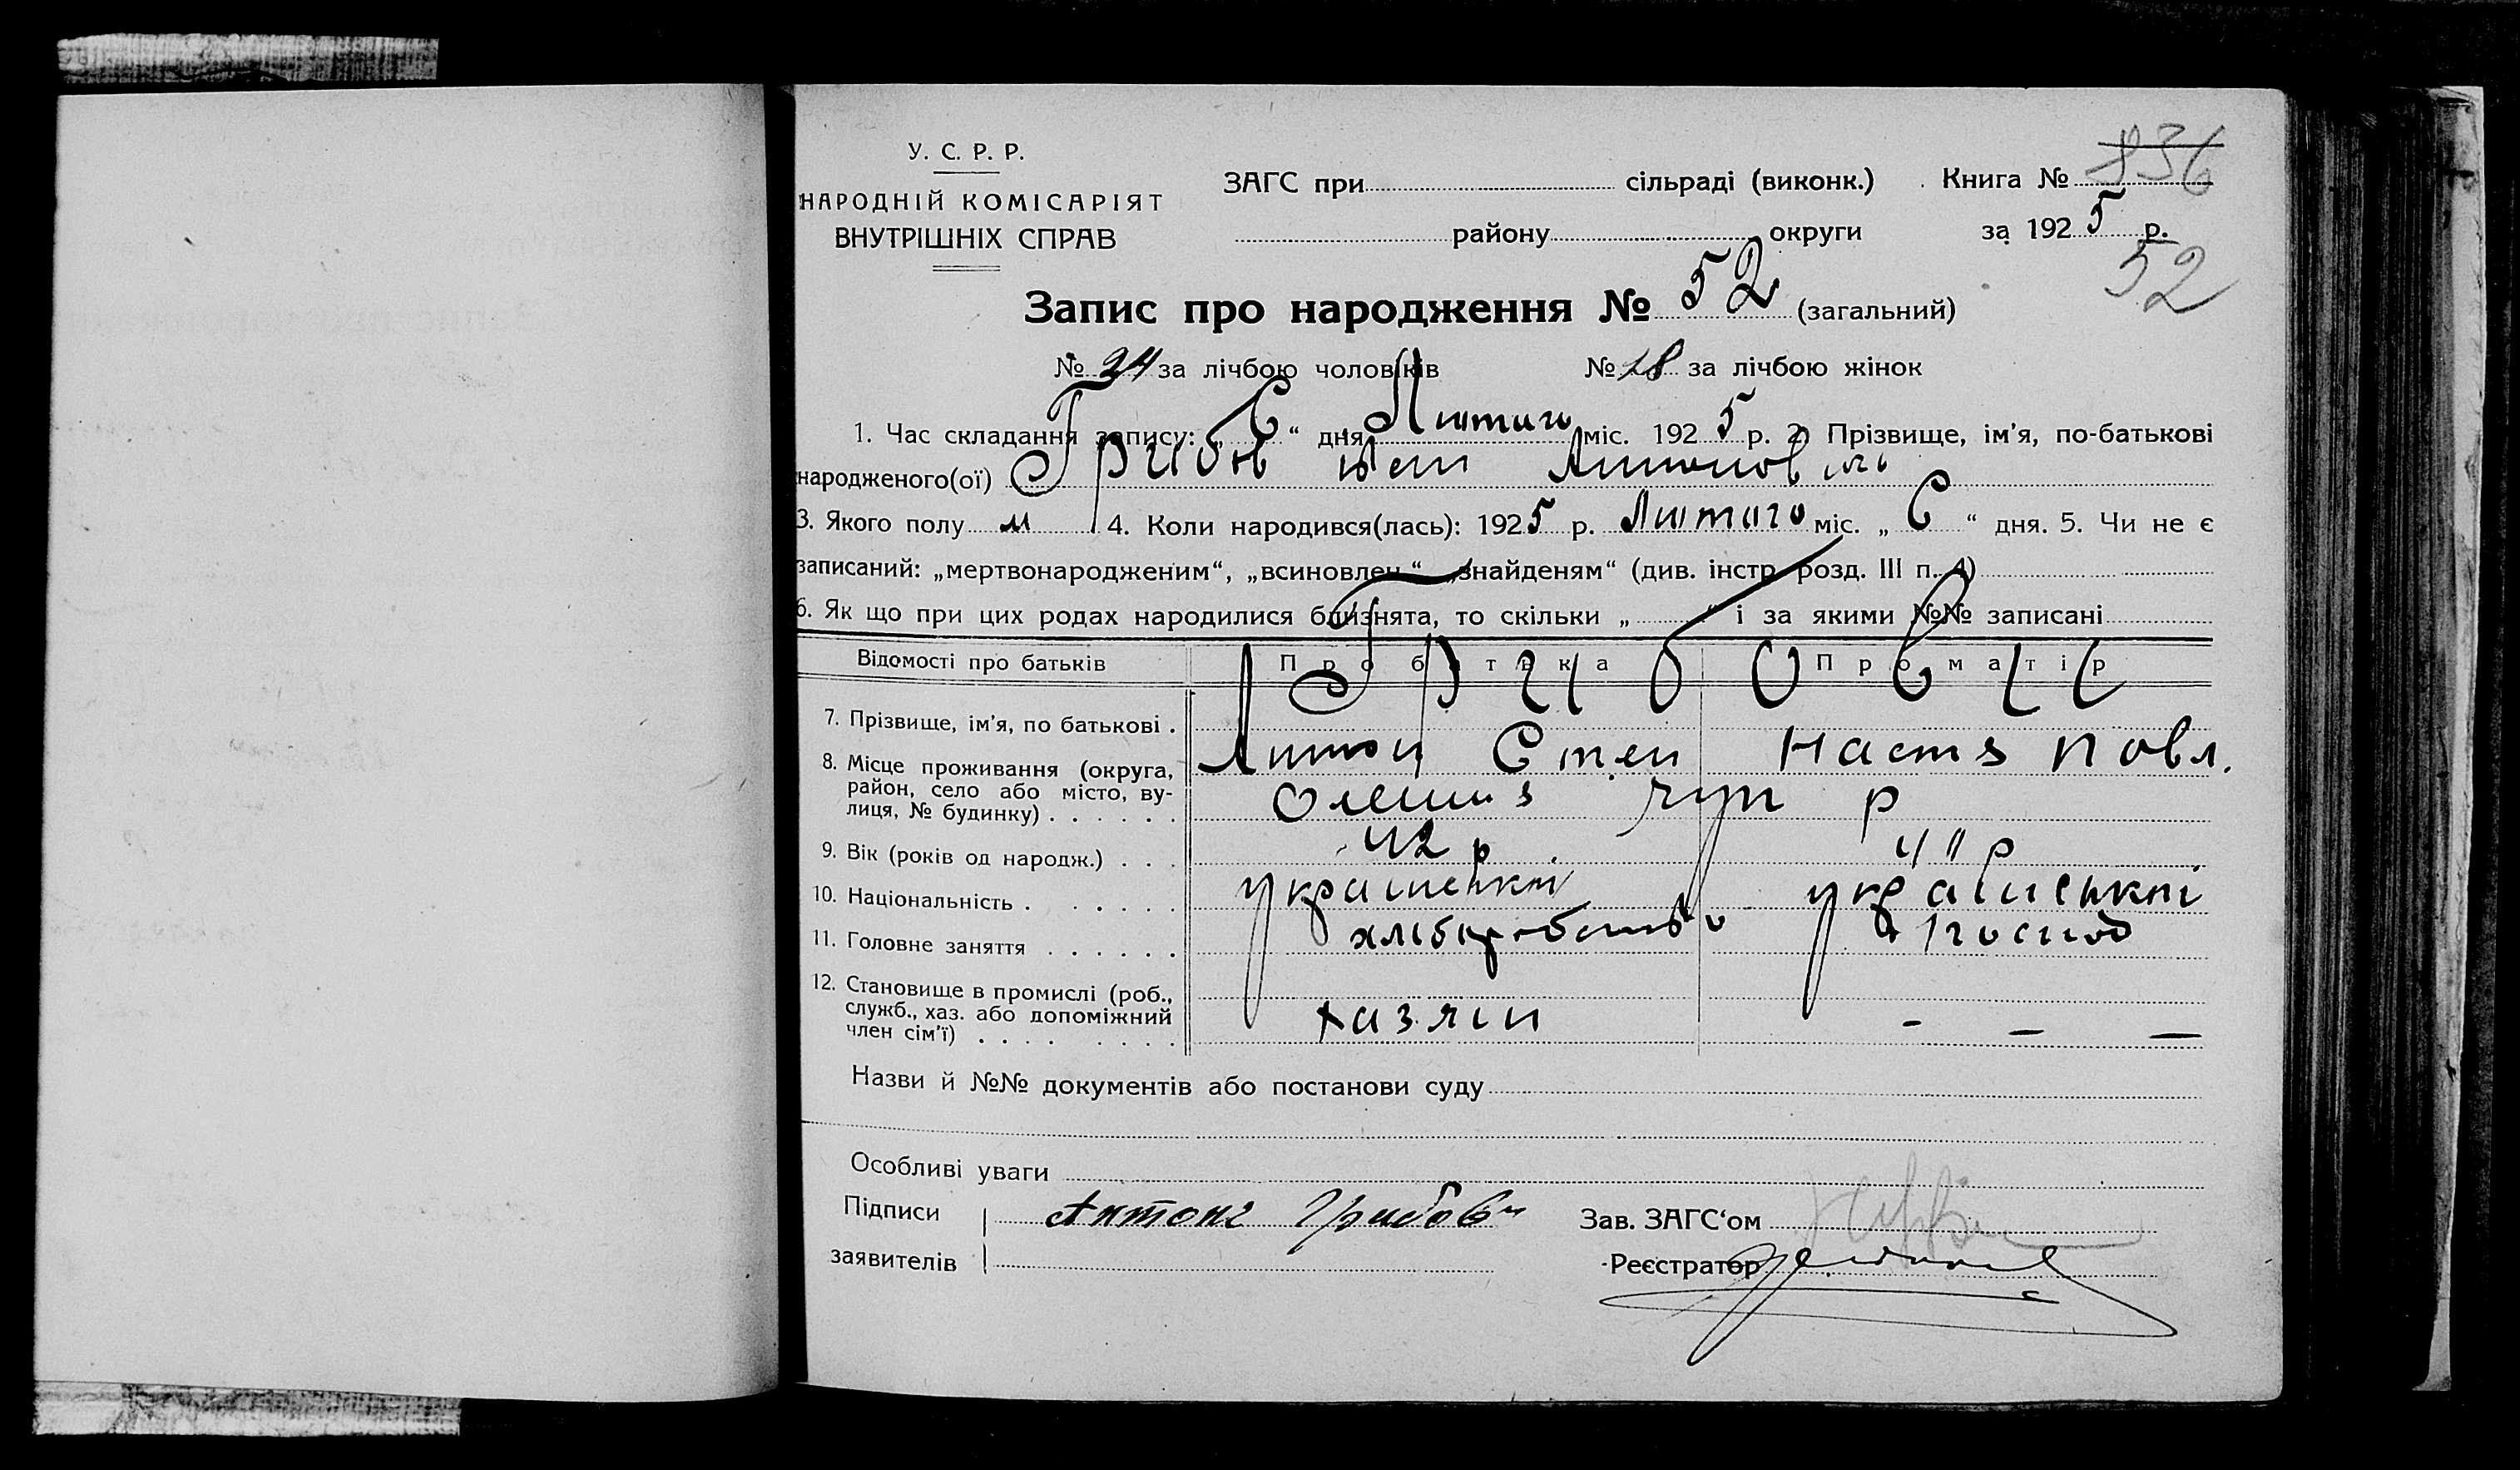 У. С. Р. Р.
НАРОДНІЙ КОМІСАРІЯТ
ВНУТРІШНІХ СПРАВ
ЗАГС при сільраді (виконк.) Книга № 836
району округи за 1925 р.
52
Запис про народження № 52 (загальний)
№ 24 за лічбою чоловіків № 28 за лічбою жінок
1. Час складання запису: „ 6 “ дня Лютаго міс. 1925 р. 2) Прізвище, ім'я, по-батькові
народженого(ої) Грибов Антонович
3. Якого полу м 4. Коли народився(лась): 1925 р. Лютаго міс. „ 6 “ дня. 5. Чи не є
записаний: „мертвонародженим“, „всиновлен.“ „знайденям“ (див. інстр. розд. III п. 4)
6. Як що при цих родах народилися близнята, то скільки „ “ і за якими №№ записані
Відомості про батьків Про батька Про матір
Грибови
7. Прізвище, ім'я, по батькові . Антон Степ Настя Повл.
8. Місце проживання (округа,
район, село або місто, ву-
лиця, № будинку) . . . . . . Олешня р
9. Вік (років од народж.) . . . 42 р 41 р
10. Національність . . . . . . українській українській
11. Головне заняття . . . . . . хліборобство господ
12. Становище в промислі (роб.,
служб., хаз. або допоміжний
член сім'ї) . . . . . . . . хазяін - - -
Назви й №№ документів або постанови суду
Особливі уваги
Підписи Антонъ Грибовъ Зав. ЗАГС‘ом
заявителів Реєстратор